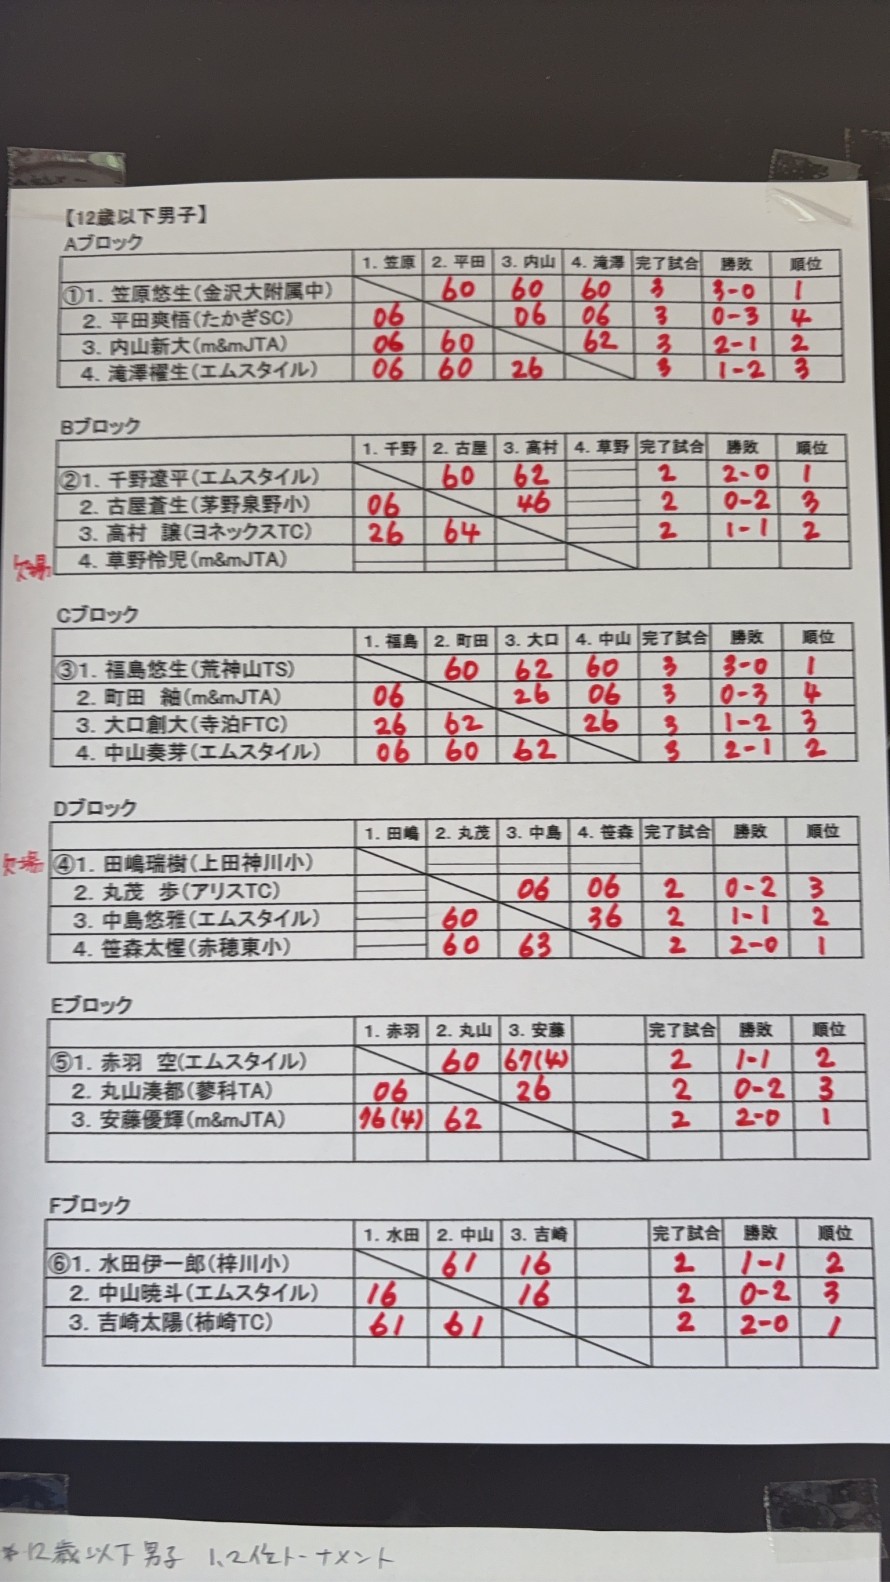 【12歳以下男子】
Aブロック
1. 笠原 2. 平田 3. 内山 4. 滝澤 完了試合 勝敗 順位
①1. 笠原悠生(金沢大附属中) 60 60 60 3 3-0 1
2. 平田爽悟(たかぎSC) 06 06 06 3 0-3 4
3. 内山新大(m&mJTA) 06 60 62 3 2-1 2
4. 滝澤櫂生(エムスタイル) 06 60 26 3 1-2 3
Bブロック
1. 千野 2. 古屋 3. 高村 4. 草野 完了試合 勝敗 順位
②1. 千野遼平(エムスタイル) 60 62 2 2-0 1
2. 古屋蒼生(茅野泉野小) 06 46 2 0-2 3
3. 高村 譲(ヨネックスTC) 26 64 2 1-1 2
欠場 4. 草野怜児(m&mJTA)
Cブロック
1. 福島 2. 町田 3. 大口 4. 中山 完了試合 勝敗 順位
③1. 福島悠生(荒神山TS) 60 62 60 3 3-0 1
2. 町田 紬(m&mJTA) 06 26 06 3 0-3 4
3. 大口創大(寺泊FTC) 26 62 26 3 1-2 3
4. 中山奏芽(エムスタイル) 06 60 62 3 2-1 2
Dブロック
1. 田嶋 2. 丸茂 3. 中島 4. 笹森 完了試合 勝敗 順位
欠場 ④1. 田嶋瑞樹(上田神川小)
2. 丸茂 歩(アリスTC) 06 06 2 0-2 3
3. 中島悠雅(エムスタイル) 60 36 2 1-1 2
4. 笹森太惺(赤穂東小) 60 63 2 2-0 1
Eブロック
1. 赤羽 2. 丸山 3. 安藤 完了試合 勝敗 順位
⑤1. 赤羽 空(エムスタイル) 60 67(4) 2 1-1 2
2. 丸山湊都(蓼科TA) 06 26 2 0-2 3
3. 安藤優輝(m&mJTA) 76(4) 62 2 2-0 1
Fブロック
1. 水田 2. 中山 3. 吉崎 完了試合 勝敗 順位
⑥1. 水田伊一郎(梓川小) 61 16 2 1-1 2
2. 中山暁斗(エムスタイル) 16 16 2 0-2 3
3. 吉崎太陽(柿崎TC) 61 61 2 2-0 1
*12歳以下男子 1,2位トーナメント